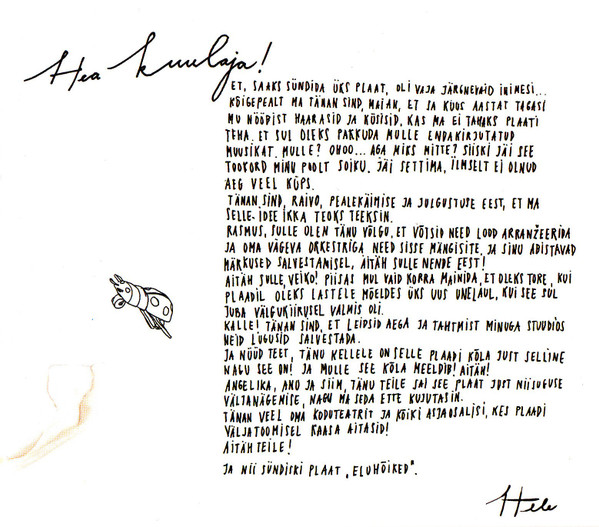 Hea kuulaja!
ET, SAAKS SÜNDIDA ÜKS PLAAT, OLI VAJA JÄRGNEVAID INIMESI...
KÕIGEPEALT MA TÄNAN SIND, MAIAN, ET JA KUUS AASTAT TAGASI
MU NÖÖBIST HAARASID JA KÜSISID, KAS MA EI TAHAKS PLAATI
TEHA. ET SUL OLEKS PAKKUDA MULLE ENDAKIRJUTATUD
MUUSIKAT. MULLE? OHOO... AGA MIKS MITTE? SIISKI JÄI SEE
TOOKORD MINU POOLT SOIKU. JÄI SETTIMA, ILMSELT EI OLNUD
AEG VEEL KÜPS.
TÄNAN SIND, RAIVO, PEALEKÄIMISE JA JULGUSTUSE EEST, ET MA
SELLE IDEE IKKA TEOKS TEEKSIN.
RASMUS, SULLE OLEN TÄNU VÕLGU, ET VÕTSID NEED LOOD ARRANŽEERIDA
JA OMA VÄGEVA ORKESTRIGA NEED SISSE MÄNGISITE. JA SINU ABISTAVAD
MÄRKUSED SALVESTAMISEL, AITÄH SULLE NENDE EEST!
AITÄH SULLE, VEIKO! PIISAS MUL VAID KORRA MAINIDA, ET OLEKS TORE, KUI
PLAADIL OLEKS LASTELE MÕELDES ÜKS UUS UNELAUL, KUI SEE SUL
JUBA VÄLGUKIIRUSEL VALMIS OLI.
KALLE! TÄNAN SIND, ET LEIDSID AEGA JA TAHTMIST MINUGA STUUDIOS
NEID LUGUSID SALVESTADA.
JA NÜÜD TEET, TÄNU KELLELE ON SELLE PLAADI KÕLA JUST SELLINE
NAGU SEE ON! JA MULLE SEE KÕLA MEELDIB! AITÄH!
ANGELIKA, ANU JA SIIM, TÄNU TEILE SAI SEE PLAAT JUST NIISUGUSE
VÄLJANÄGEMISE, NAGU MA SEDA ETTE KUJUTASIN.
TÄNAN VEEL OMA KODUTEATRIT JA KÕIKI ASJAOSALISI, KES PLAADI
VÄLJATOOMISEL KAASA AITASID!
AITÄH TEILE!
JA NII SÜNDISKI PLAAT „ELUHÕIKED".
Hele